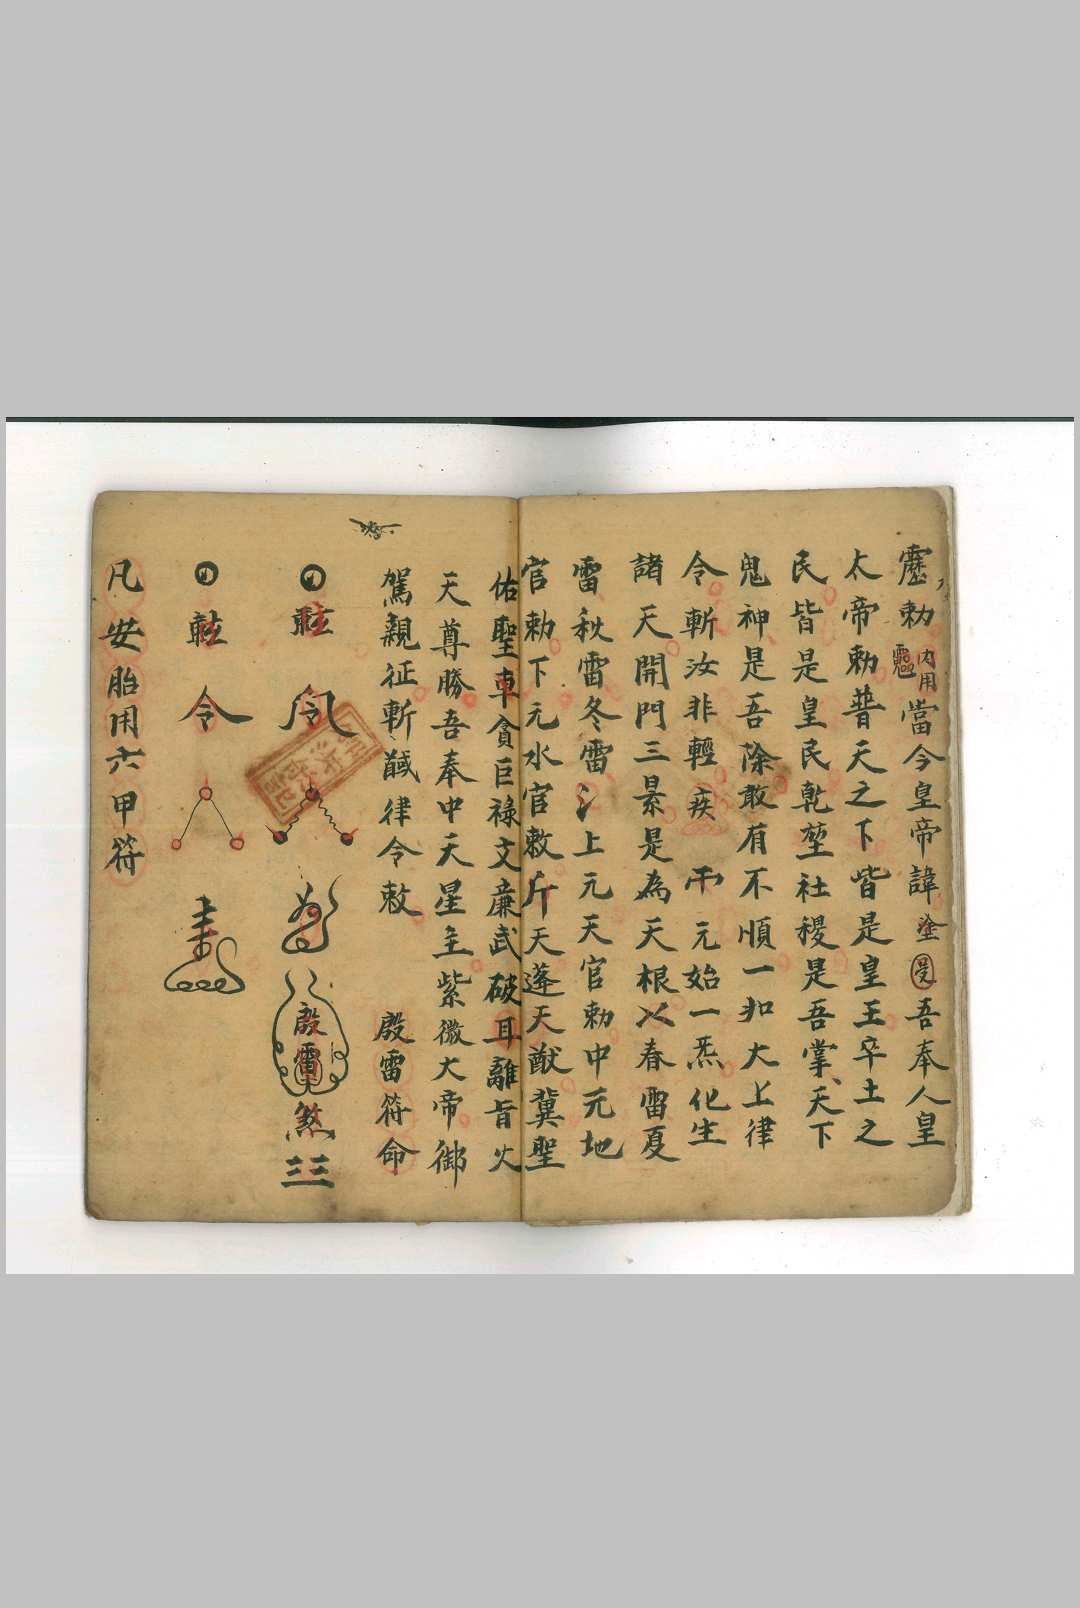 勅 內用 當今皇帝諱塗 吾奉人皇
太帝勅普天之下皆是皇王卒土之
民皆是皇民乾堃社稷是吾掌天下
鬼神是吾除敢有不順一如大上律
令斬汝非輕疾 元始一炁化生
諸天開門三景是為天根以春雷夏
雷秋雷冬雷 上元天官勅中元地
官勅下元水官敕斤天蓬天猷冀聖
佑聖車貪巨祿文廉武破耳離旨火
天尊勝吾奉中天星主紫微大帝御
駕親征斬馘律令敕 殷雷符命
殷雷 煞
令
凡安胎用六甲符